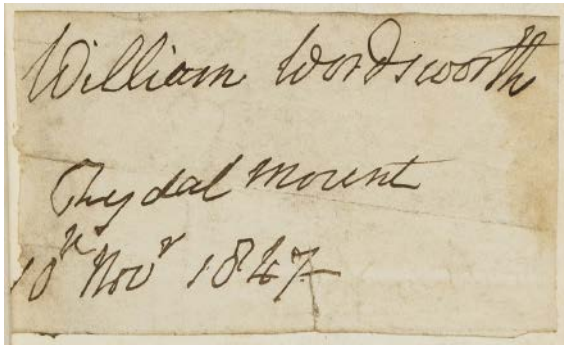 William Wordsworth
Rydal Mount
10th Novr 1847